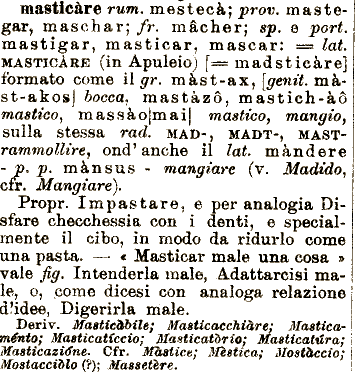 masticàre rum. mestecà; prov. maste-
gar, maschar; fr. mâcher; sp. e port.
mastigar, masticar, mascar: = lat.
MASTICÀRE (in Apuleio) [= madsticàre]
formato come il gr. màst-ax, [genit. mà-
st-akos] bocca, mastàzô, mastich-àô
mastico, massào[mai] mastico, mangio,
sulla stessa rad. MAD-, MADT-, MAST-
rammollire, ond'anche il lat. màndere
- p. p. mànsus - mangiare (v. Madido,
cfr. Mangiare).
Propr. Impastare, e per analogia Di-
sfare checchessia con i denti, e special-
mente il cibo, in modo da ridurlo come
una pasta. — « Masticar male una cosa »
vale fig. Intenderla male, Adattarcisi ma-
le, o, come dicesi con analoga relazione
d'idee, Digerirla male.
Deriv. Masticàbile; Masticacchiàre; Mastica-
ménto; Masticatíccio; Masticatòrio; Masticatúra;
Masticazióne. Cfr. Màstice; Mèstica; Mostàccio;
Mostacciòlo (?); Massetère.